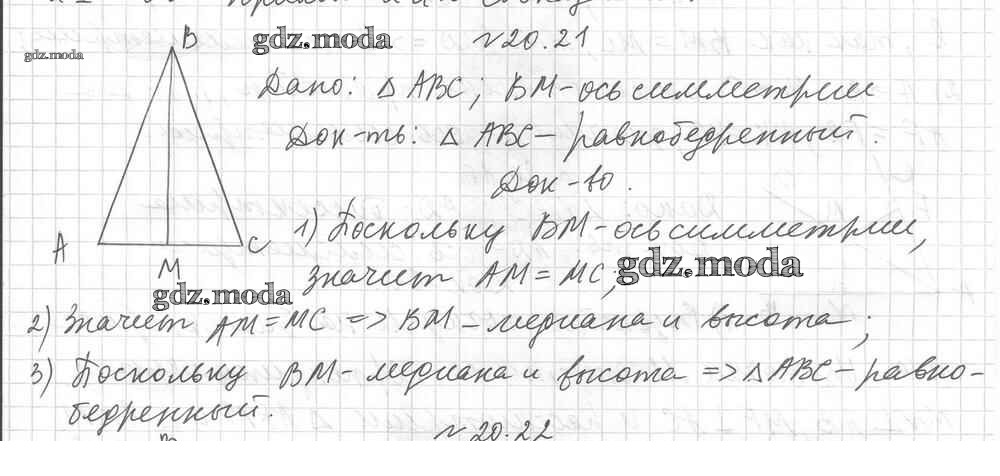 B
gdz.moda
gdz.moda
№20.21
Дано: △ ABC; BM-ось симметрии
Док-ть: △ ABC- равнобедренный.
Док-во.
1) Поскольку BM-ось симметрии,
A
C
M
значит AM = MC;
gdz.moda
gdz.moda
2) Значит AM=MC => BM-медиана и высота;
3) Поскольку BM-медиана и высота => △ ABC-равно-
бедренный.
№20.22